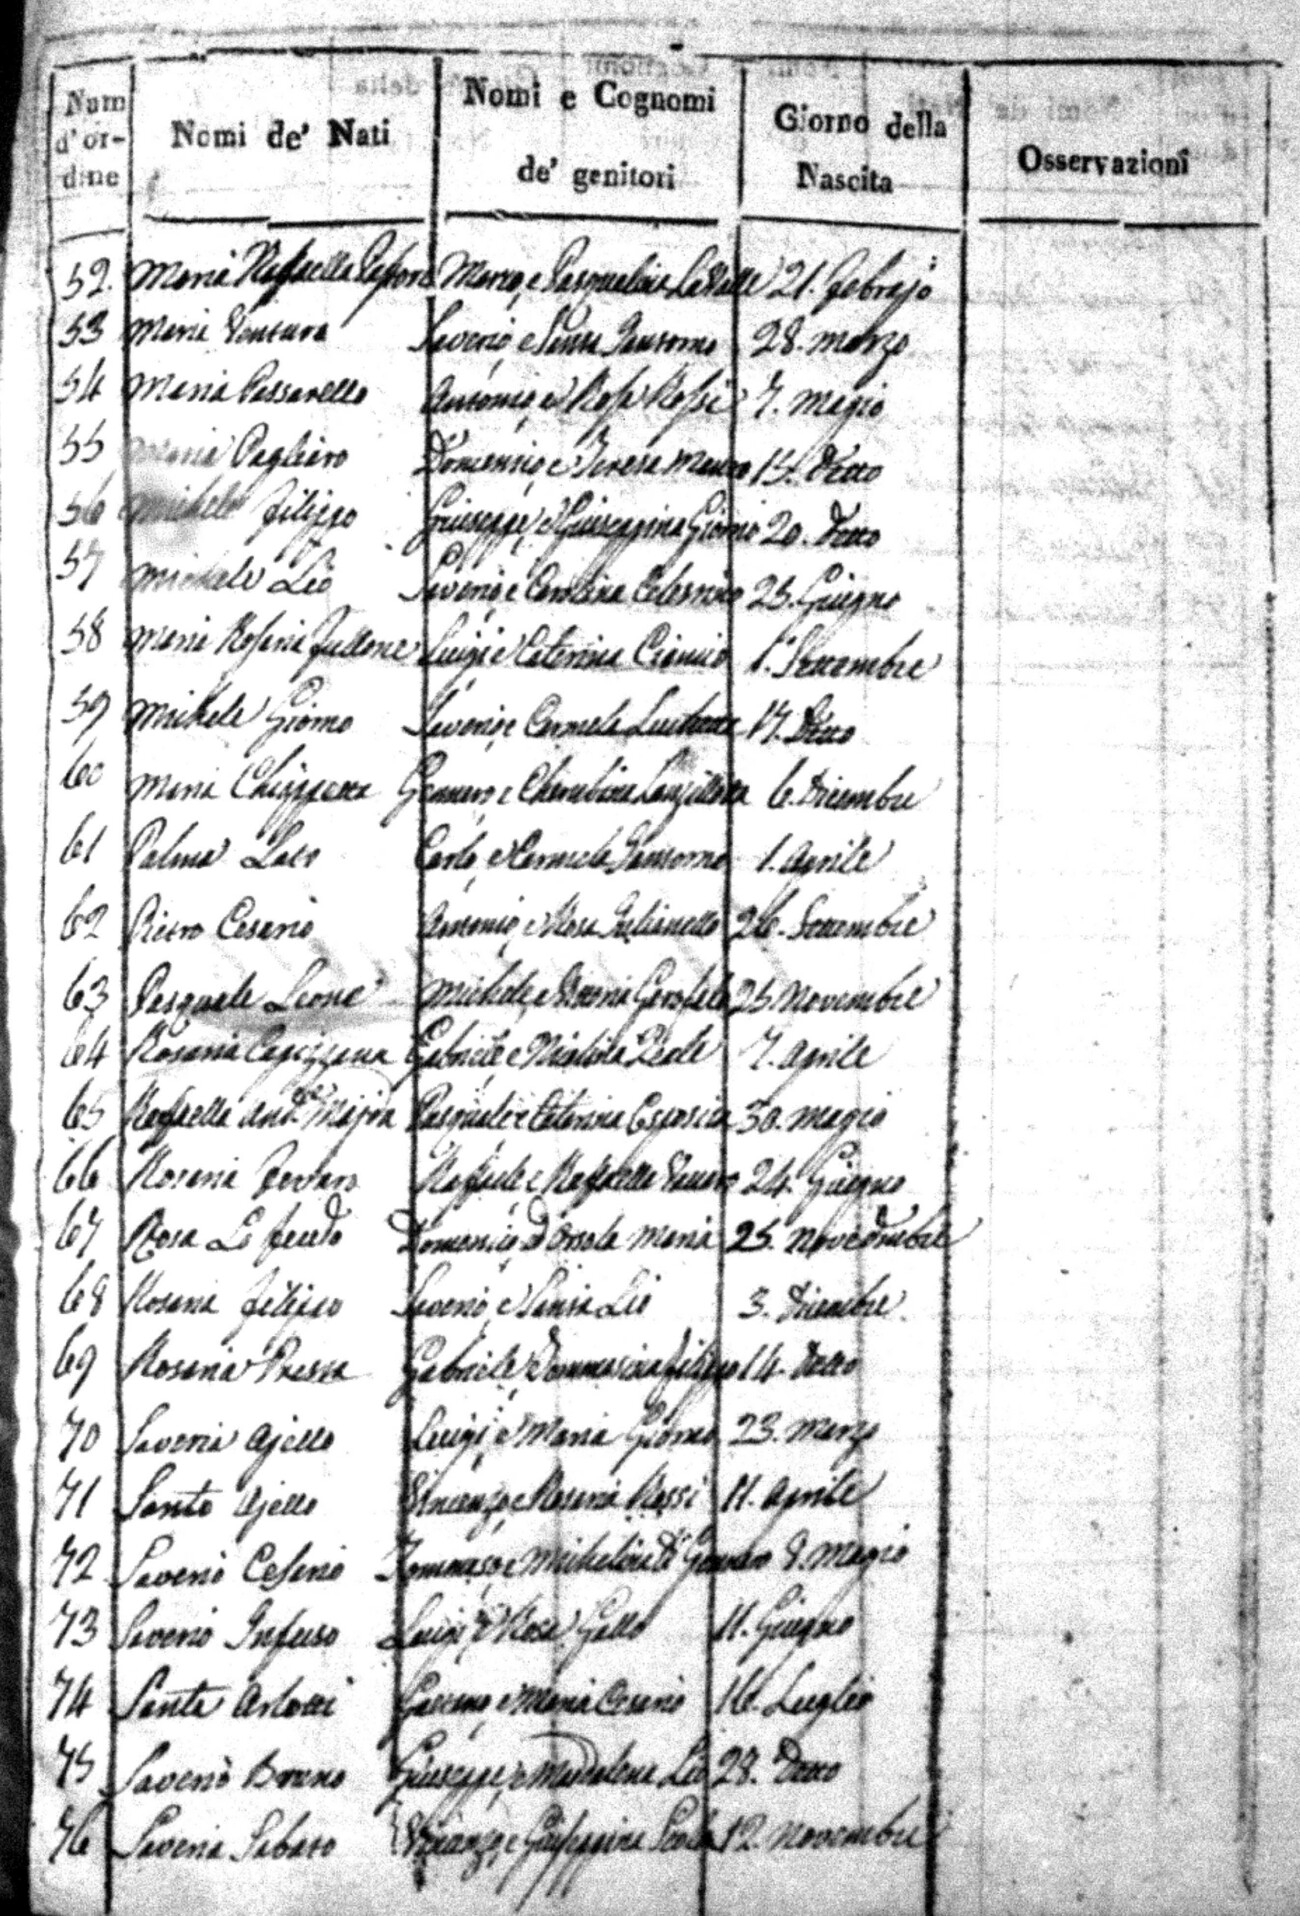 Num d'or-dine | Nomi de' Nati | Nomi e Cognomi de' genitori | Giorno della Nascita | Osservazioni
52. Maria Raffaella | Marco, e Pasqualina La Valle | 21. Febrajo
53 Maria Ventura | Saverio, e Santa Sansorno | 28. Marzo
54 Maria Passarello | Antonio, e Rosa Rossi | 7. Magio
55 Maria Pagliaro | Domenico, e Teresa Mauro | 15. Detto
56 Michele Filippo | Giuseppe, e Giuseppina Giorno | 20. Detto
57 Michele Liò | Saverio e Carolina Celestino | 25. Giugno
58 Maria Rosaria Fullone | Luigi e Caterina | 1. Settembre
59 Michele Giorno | Saverio, e Carmela | 17. Detto
60 Maria Chiappetta | Gennaro e Cherubina Lanzillotta | 6. Dicembre
61 Palma | Carlo, e Carmela Sansorno | 1. Aprile
62 Pietro Cesario | Antonio, e Rosa Julianello | 26. Settembre
63 Pasquale Leone | Michele, e Garofalo | 25 Novembre
64 Rosaria | Gabriele e Reale | 7. Aprile
65 Raffaella Majda | Pasquale e Caterina Esposito | 30. Magio
66 Rosaria Ferraro | Raffaele e Raffaella | 24. Giugno
67 Rosa Lo Feudo | Domenico, ed Orsola Maria | 25. Novembre
68 Rosaria Filippo | Saverio, e Santa Liò | 3. Dicembre
69 Rosaria Pressa | Gabriele, e Tommasina Filippo | 14. Detto
70 Saveria Ajello | Luigi, e Maria Giorno | 23. Marzo
71 Santo Ajello | Vincenzo, e Rosaria Rossi | 11. Aprile
72 Saverio Cesario | Tommaso, e Michelina Di Gennaro | 8. Magio
73 Saverio Infuso | Luigi, e Rosa Gallo | 11. Giugno
74 Santa Arlotti | Gaetano, e Maria Cesario | 16. Luglio
75 Saverio Bruno | Giuseppe, e Maddalena Liò | 28. Detto
76 Saveria Sabato | Vincenzo, e Giuseppina Scola | 12. Novembre